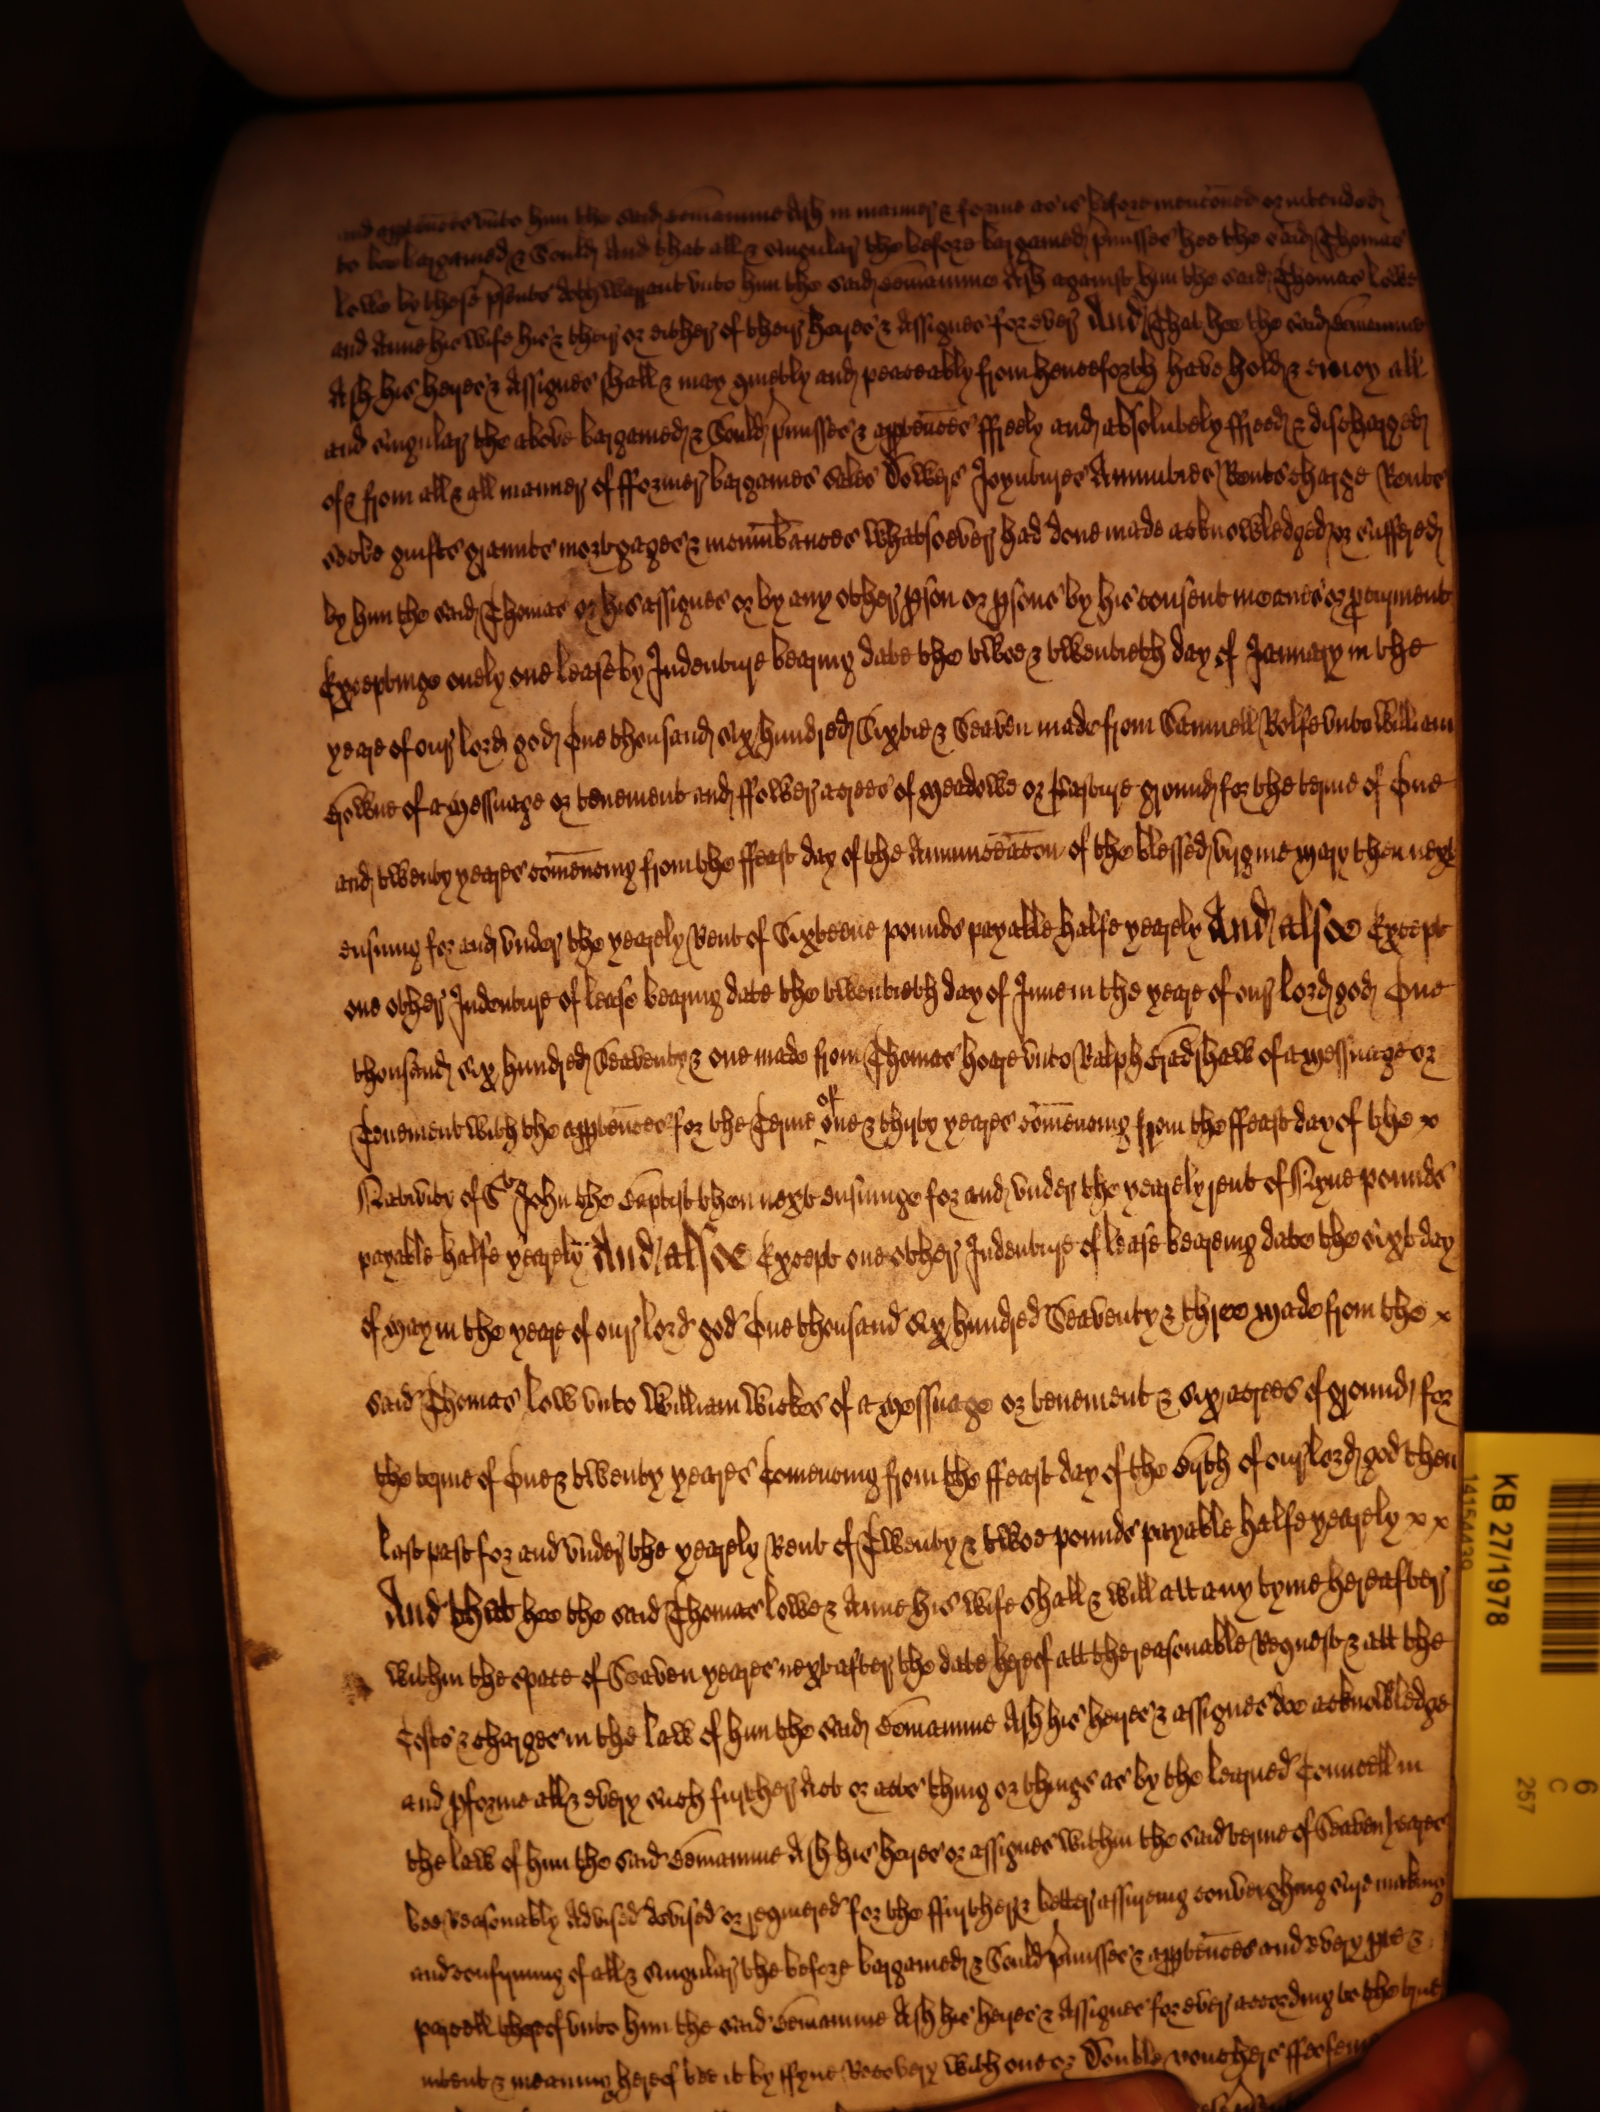 and apptences unto him the said Bemamine Ash in manner & forme as is before mencōned or intended
to bee bargained & Sould And that all & singular the before bargained p'misses hee the said Thomas
Lowe by these p'sents doth warrant unto him the said Bemamine Ash against him the said Thomas Lowe
and Anne his wife his & their or either of their heires & Assignes for ever And That hee the said Bemamine
Ash his heires & Assignes shall & may quietly and peaceably from henceforth have hold & enioy all
and singular the above bargained & Sould p'misses & apptences ffreely and absolutely ffreed & discharged
of & from all & all manner of fformer bargaines sales Dowers Joyntures Annuities Rents charge Rents
secke guifts grannts mortgages & incumbances whatsoever had done made acknowledged or suffered
by him the said Thomas or his assignes or by any other pson or psons by his consent meanes or p'curment
Exceptinge onely one lease by Indenture bearing date the twoe & twentieth day of January in the
yeare of our lord god One thousand six hundred Sixtie & Seaven made from Samuell Rolfe unto William
Browne of a Messuage or tenement and ffower acres of Meadowe or Pasture ground for the terme of One
and twenty yeares comencing from the ffeast day of the Annuncēacōn of the blessed Virgine Mary then next
ensuing for and under the yearely Rent of Sixteene pounds payable halfe yearely And alsoe Except
one other Indenture of lease bearing date the twentieth day of June in the yeare of our lord god One
thousand six hundred Seaventy & one made from Thomas hoare unto Ralph Bradshaw of a Messuage or
Tenement with the apptences for the Terme of one & thirty yeares comencing from the ffeast day of the x
Nativity of St John the Baptist then next ensuinge for and under the yearely rent of Nyne pounds
payable halfe yearely And alsoe Except one other Indenture of lease beareing date the sixt day
of May in the yeare of our lord god One thousand six hundred Seaventy & three Made from the x
said Thomas Low unto William Wickes of a Messuage or tenement & six acres of ground for
the terme of One & twenty yeares Comencing from the ffeast day of the Birth of our lord god then
last past for and under the yearely Rent of Twenty & twoe pounds payable halfe yearely x x
And that hee the said Thomas Lowe & Anne his wife shall & will att any tyme hereafter
within the space of Seaven yeares next after the date hereof att the reasonable Request & att the
Costs & charges in the law of him the said Bemamine Ash his heires & assignes doe acknowledge
and pforme all & every such further Act or acts thing or things as by the learned Councell in
the law of him the said Bemamine Ash his heires or assignes within the said terme of Seaven yeares
bee reasonably Advised devised or required for the ffurther & better assureing conveighing sure making
and confirming of all & singular the before bargained & Sould p'misses & apptences and every pte &
parcell thereof unto him the said Bemamine Ash his heires & Assignes for ever according to the true
intent & meaning hereof bee it by ffyne Recovery with one or Double vouchers
KB 27/1978
14154439
6
C
257